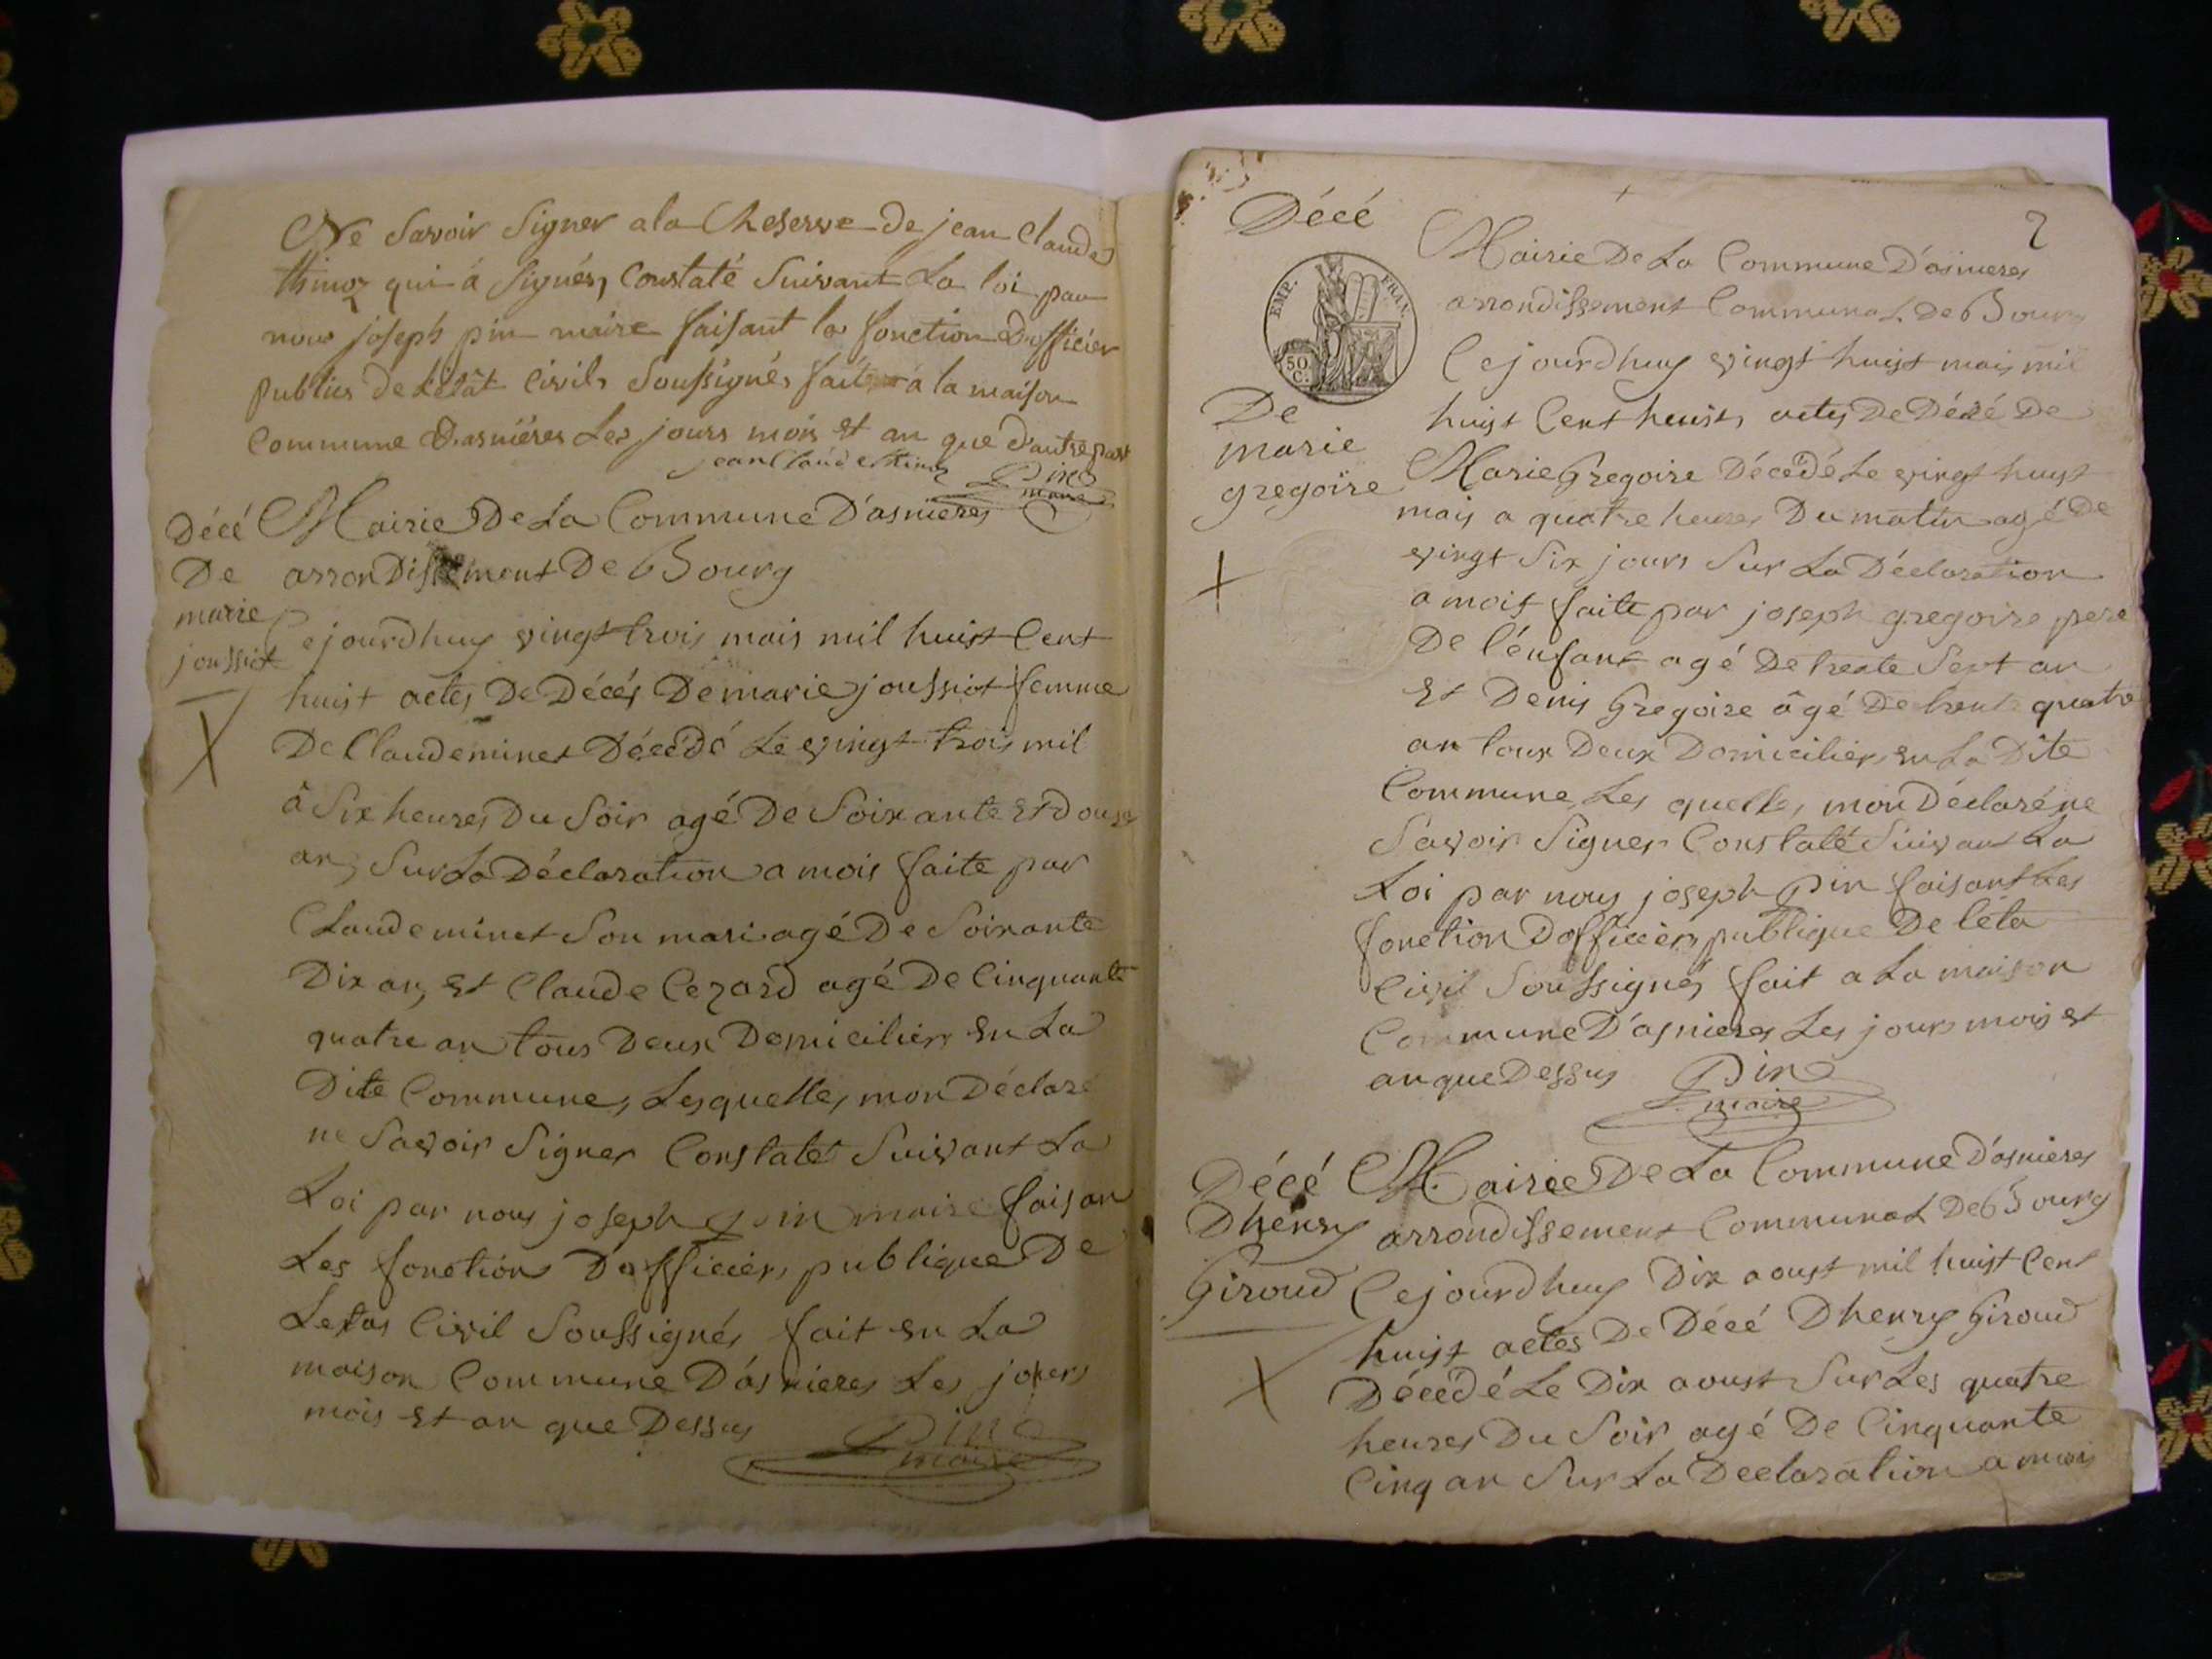 Ne Savoir Signer a la Reserve de jean Claude
thinoz qui à Signés, Constaté Suivant La loi par
nous joseph pin maire faisant la fonction D'officier
publics de L'état Civil, Soussignés fait à la maison
Commune D'asniéres Les jours mois et an que d'autre part
jean Claude thinoz Pin
maire
Décé
De
marie
joussiot
Mairie De La Commune D'asnieres
arrondissement De Bourg
Cejourdhuy vingt trois mais mil huist Cent
huist actes De Décés De marie joussiot femme
De Claude minet Décédé Le vingt trois mil
à Six heures Du Soir agé De Soixante Et douse
an, Sur La Déclaration a mois faite par
Claude minet Son mari agé De Soixante
Dix an, Et Claude Cezard agé De Cinquante
quatre an tous Deux Domiciliers En La
Dite Commune, Lesquelles mon Déclaré
ne Savoir Signer Constaté Suivant La
Loi par nous joseph pin maire faisan
Les fonction D'officier, publique De
Letas Civil Soussignés fait en La
maison Commune D'asnieres Les jours
mois Et an que Dessus Pin
maire
Décé
2
EMP. FRAN.
50
C.
De
marie
gregoire
Mairie De La Commune D'asnieres
arrondissement Communal De Bourg
Cejourdhuy vingt huist mais mil
huist Cent huist, actes De Décé De
Marie Gregoire Décédé Le vingt huist
mais a quatre heures Du matin agé De
vingt Six jours Sur La Déclaration
a mois faite par joseph gregoire pere
De l'énfant agé De trente Sept an
Et Denis Gregoire âgé De trente quatre
an tous Deux Domiciliers, En La Dite
Commune, Les quelles, mon Déclaré ne
Savoir Signer Constaté Suivant La
Loi par nous joseph Pin faisant Les
fonction D'officier, publique De léta
Civil Soussignés fait a La maison
Commune D'asnieres Les jours mois et
an que Dessus Pin
maire
Décé
Dhenry
Giroud
Mairie De La Commune D'asnieres
arrondissement Communal De Bourg
Cejourdhuy Dix aoust mil huist Cent
huist actes De Décé Dhenry Giroud
Décédé Le Dix aoust Sur Les quatre
heures Du Soir agé De Cinquante
Cinq an Sur La Declaration a mois